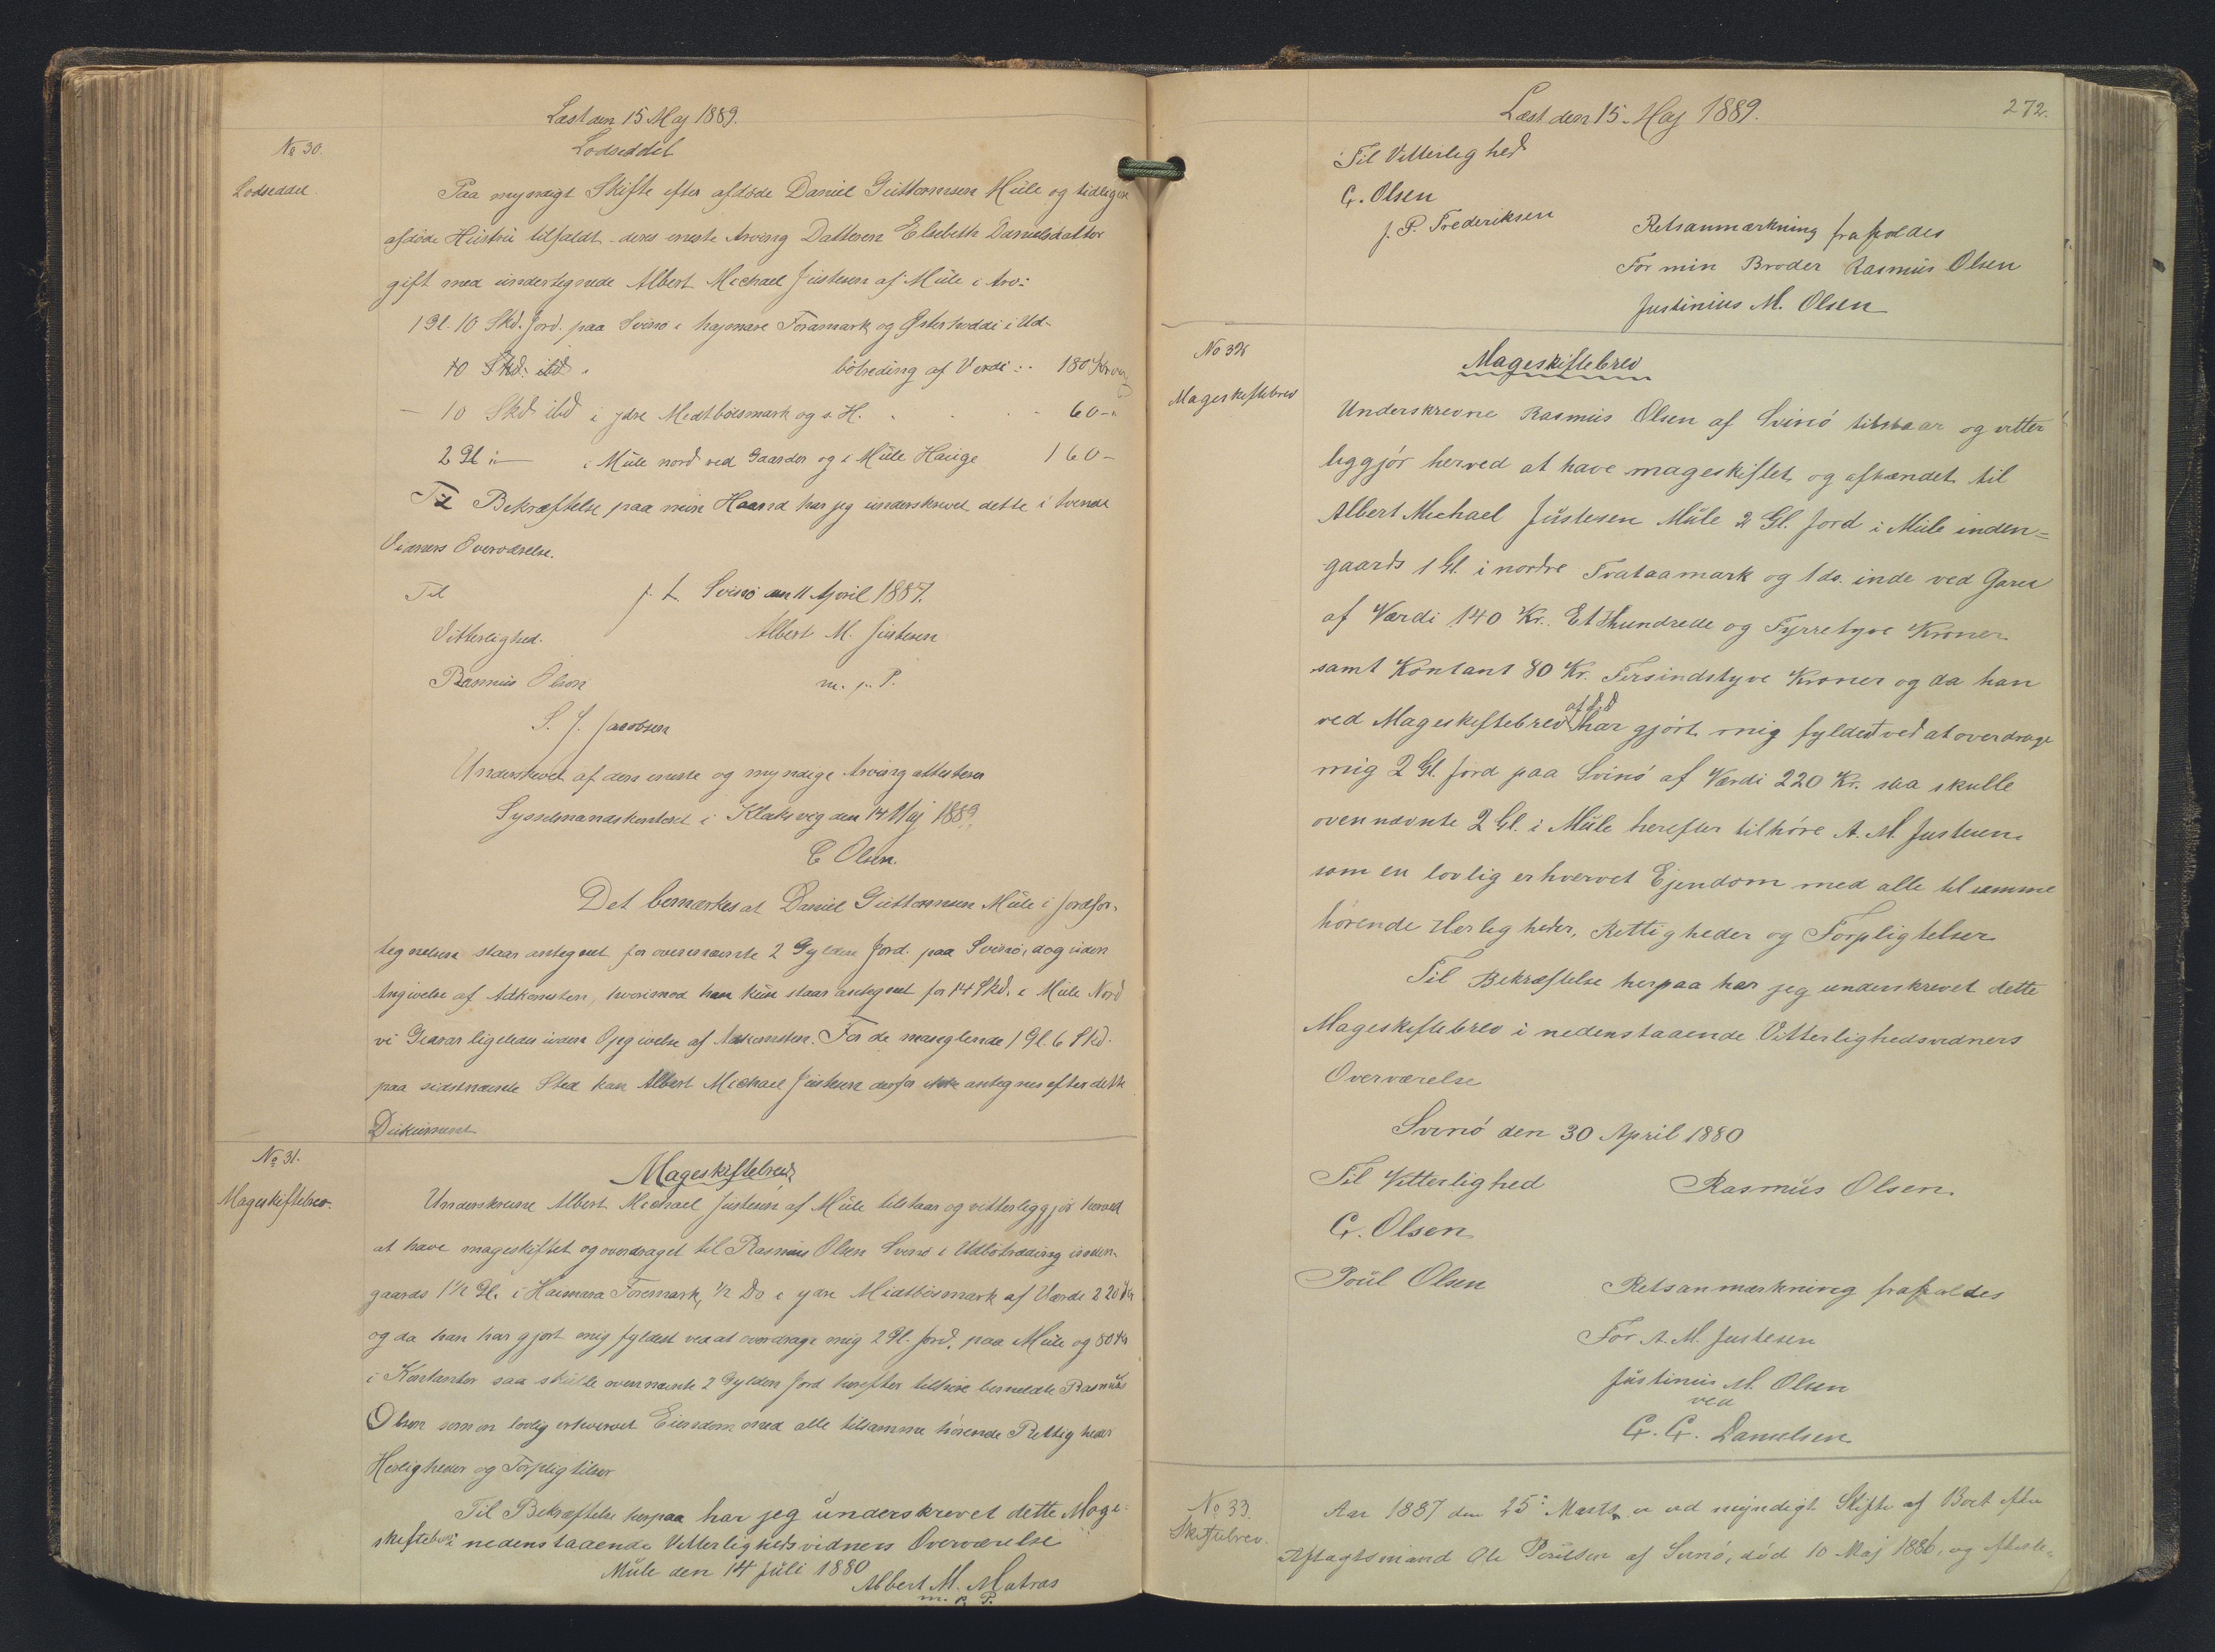 Læst den 15 Maj 1889.
No 30.
Lodseddel
Lodseddel.
Paa myndigt Skifte efter afdøde Daniel Guttormsen Müle og tidligere
afdøde Hüstrü tilfaldt deres eneste Arving Datteren Elsebeth Danielsdatter
gift med ündertegnede Albert Michael Jüstesen af Müle i Arv:
1 Gl. 10 Skd. Jord paa Svinø i hajmare Foramark og Østerhoddi i Ud-
10 Skd. ibd. bøtreding af Verdi : 180 Kroner
- 10 Skd ibd i ydre Medtbøesmark og s. H. 60 -
2 Gl i Müle nord ved Gaarder og i Müle Haüge 160 -
Til Bekræftelse paa min Haand har jeg ünderskrevet dette i tvende
Vidners Overværelse.
Til p. t. Svinø den 11 April 1887.
Vitterlighed. Albert M. Jüstesen
Rasmus Olsen m. p. P.
S. J. Jacobsen
Underskrevet af den eneste og myndige Arving attesteres
Sysselmandskontoret i Klaksvig den 14 Maj 1889.
C Olsen.
Det bemærkes at Daniel Guttormsen Müle i Jordfor-
tegnelsen staar antegnet for ovennævnte 2 Gylden Jord paa Svinø, dog üden
Angivelse af Adkomsten, hvorimod han kün staar antegnet for 14 Skd. i Müle Nord
vi Gearar ligeledes üden Opgivelse af Adkomsten. For de manglende 1 Gl. 6 Skd.
paa sidstnævnte Sted kan Albert Michael Jüstesen derfor ikke antegnes efter dette
Doküment
No 31.
Mageskiftebrev
Mageskiftebrev.
Underskrevne Albert Michael Jüstesen af Müle tilstaar og vitterliggjør herved
at have mageskiftet og overdraget til Rasmus Olsen Svinø i Udbøtræding inden-
gaards 1 1/2 Gl. i Haimara Foremark, 1/2 Do i ydre Midtbøsmark af Værdi 220 Kr
og da han har gjort mig fyldest ved at overdrage mig 2 Gl. Jord. paa Müle og 80 Kr
i Kontanter saa skülle ovennævnte 2 Gylden Jord herefter tilhøre bemeldte Rasmüs
Olsen som en lovlig erhvervet Eiendom med alle tilsamme hörende Rettigheder
Herligheder og Forpligtelser
Til Bekræftelse herpaa har jeg ünderskrevet dette Mage-
skiftebrev i nedenstaaende Vitterlighedsvidners Overværelse
Müle den 14 Jüli 1880
Albert M. Matras
m. p. P.
Læst den 15. Maj 1889.
272.
Til Vitterlighed
G. Olsen
J. P. Frederiksen
Retsanmærkning frafaldes
For min Broder Rasmüs Olsen
Justinius M. Olsen
No 32
Mageskiftebrev
Mageskiftebrev
Underskrevne Rasmüs Olsen af Svinö tilstaar og vitter
liggjör herved at have mageskiftet og afhændet til
Albert Michael Jüstesen Müle 2 Gl. Jord i Müle inden=
gaards 1 Gl. i nordre Trataamark og 1 do. inde ved Garen
af Værdi 140 Kr. Et Hundrede og Fyrretyve Kroner
samt Kontant 80 Kr. Firsindstyve Kroner og da han
ved Mageskiftebrev af d. d. har gjört mig fyldest ved at overdrage
mig 2 Gl. Jord paa Svinö af Værdi 220 Kr. saa skulle
ovennævnte 2 Gl. i Müle herefter tilhöre A. M. Justesen
som en lovlig erhvervet Ejendom med alle til samme
hörende Herligheder, Rettigheder og Forpligtelser
Til Bekræftelse herpaa har jeg underskrevet dette
Mageskiftebrev i nedenstaaende Vitterlighedsvidners
Overværelse
Svinö den 30 April 1880
Til Vitterlighed Rasmüs Olsen.
G. Olsen
Poül Olsen
Retsanmærkning frafaldes
For A. M. Justesen
Jüstinius M. Olsen
ved
G. G. Danielsen
No 33.
Skiftebrev.
Aar 1887 den 25: Marts er ved myndigt Skifte af Boet efter
Aftagtsmand Ole Poülsen af Svinö, död 10 Maj 1886, og efterle=